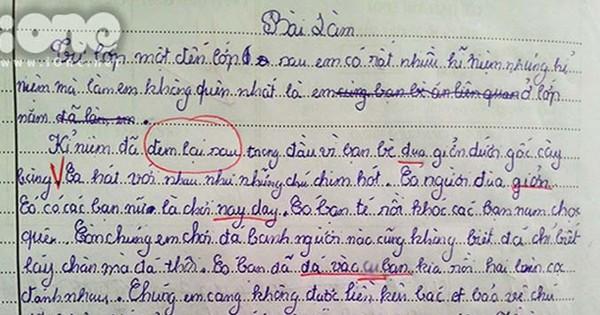 ione
www.ione.net
Bài Làm
Từ lớp một đến lớp 6 sau em có rất nhiều kĩ niệm nhưng kỉ
niệm mà làm em không quên nhất là em cùng bạn bè ở lớp
năm đã làm em.
Kỉ niệm đã đem lại sau trong đầu vì bạn bè đua giển dưới gốc cây
bàng Ca hát với nhau như những chu chim hót. Có người đùa giển
Có có các bạn nữ là chơi nay day. Có bạn té rồi khóc các bạn nam chọc
quê. Còn chúng em chơi đá banh người nào cũng không biết đá chỉ biết
lấy chân mà đá thôi. Có bạn đã đá vào cu bạn kia rồi hai lăn ra
đánh nhau. Chúng em cang không được liền kêu bác bảo vệ chú